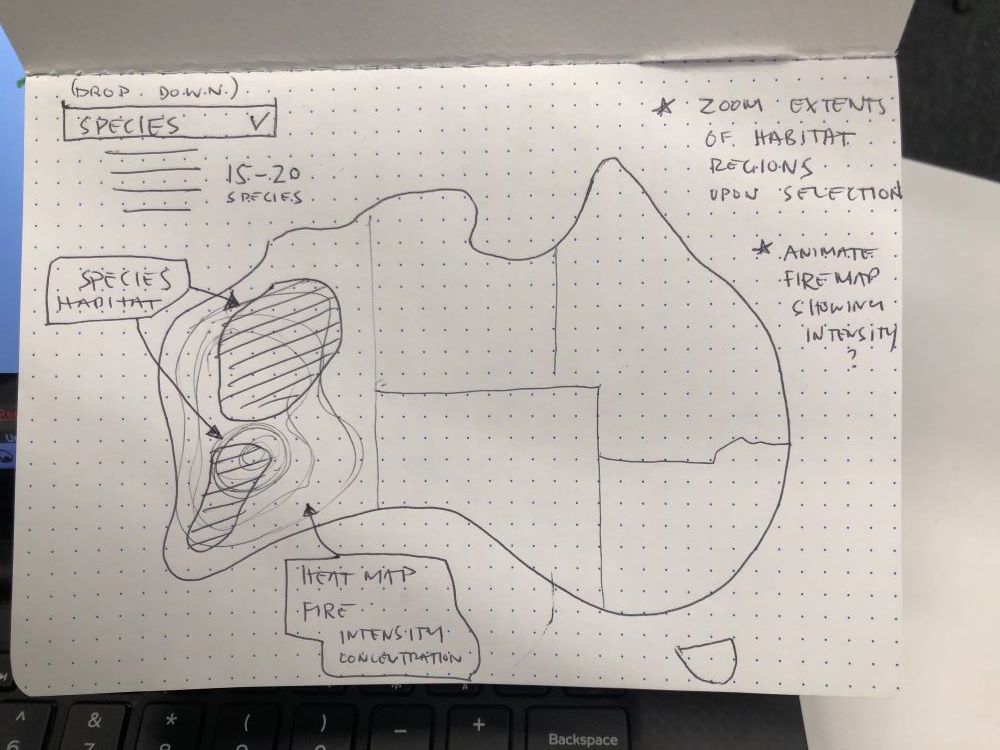 (DROP DOWN)
SPECIES
15-20
SPECIES
* ZOOM EXTENTS
OF HABITAT
REGIONS
UPON SELECTION
* ANIMATE
FIRE MAP
SHOWING
INTENSITY
?
SPECIES
HABITAT
HEAT MAP
FIRE
INTENSITY
CONCENTRATION
^
&
*
(
)
−
+
Backspace